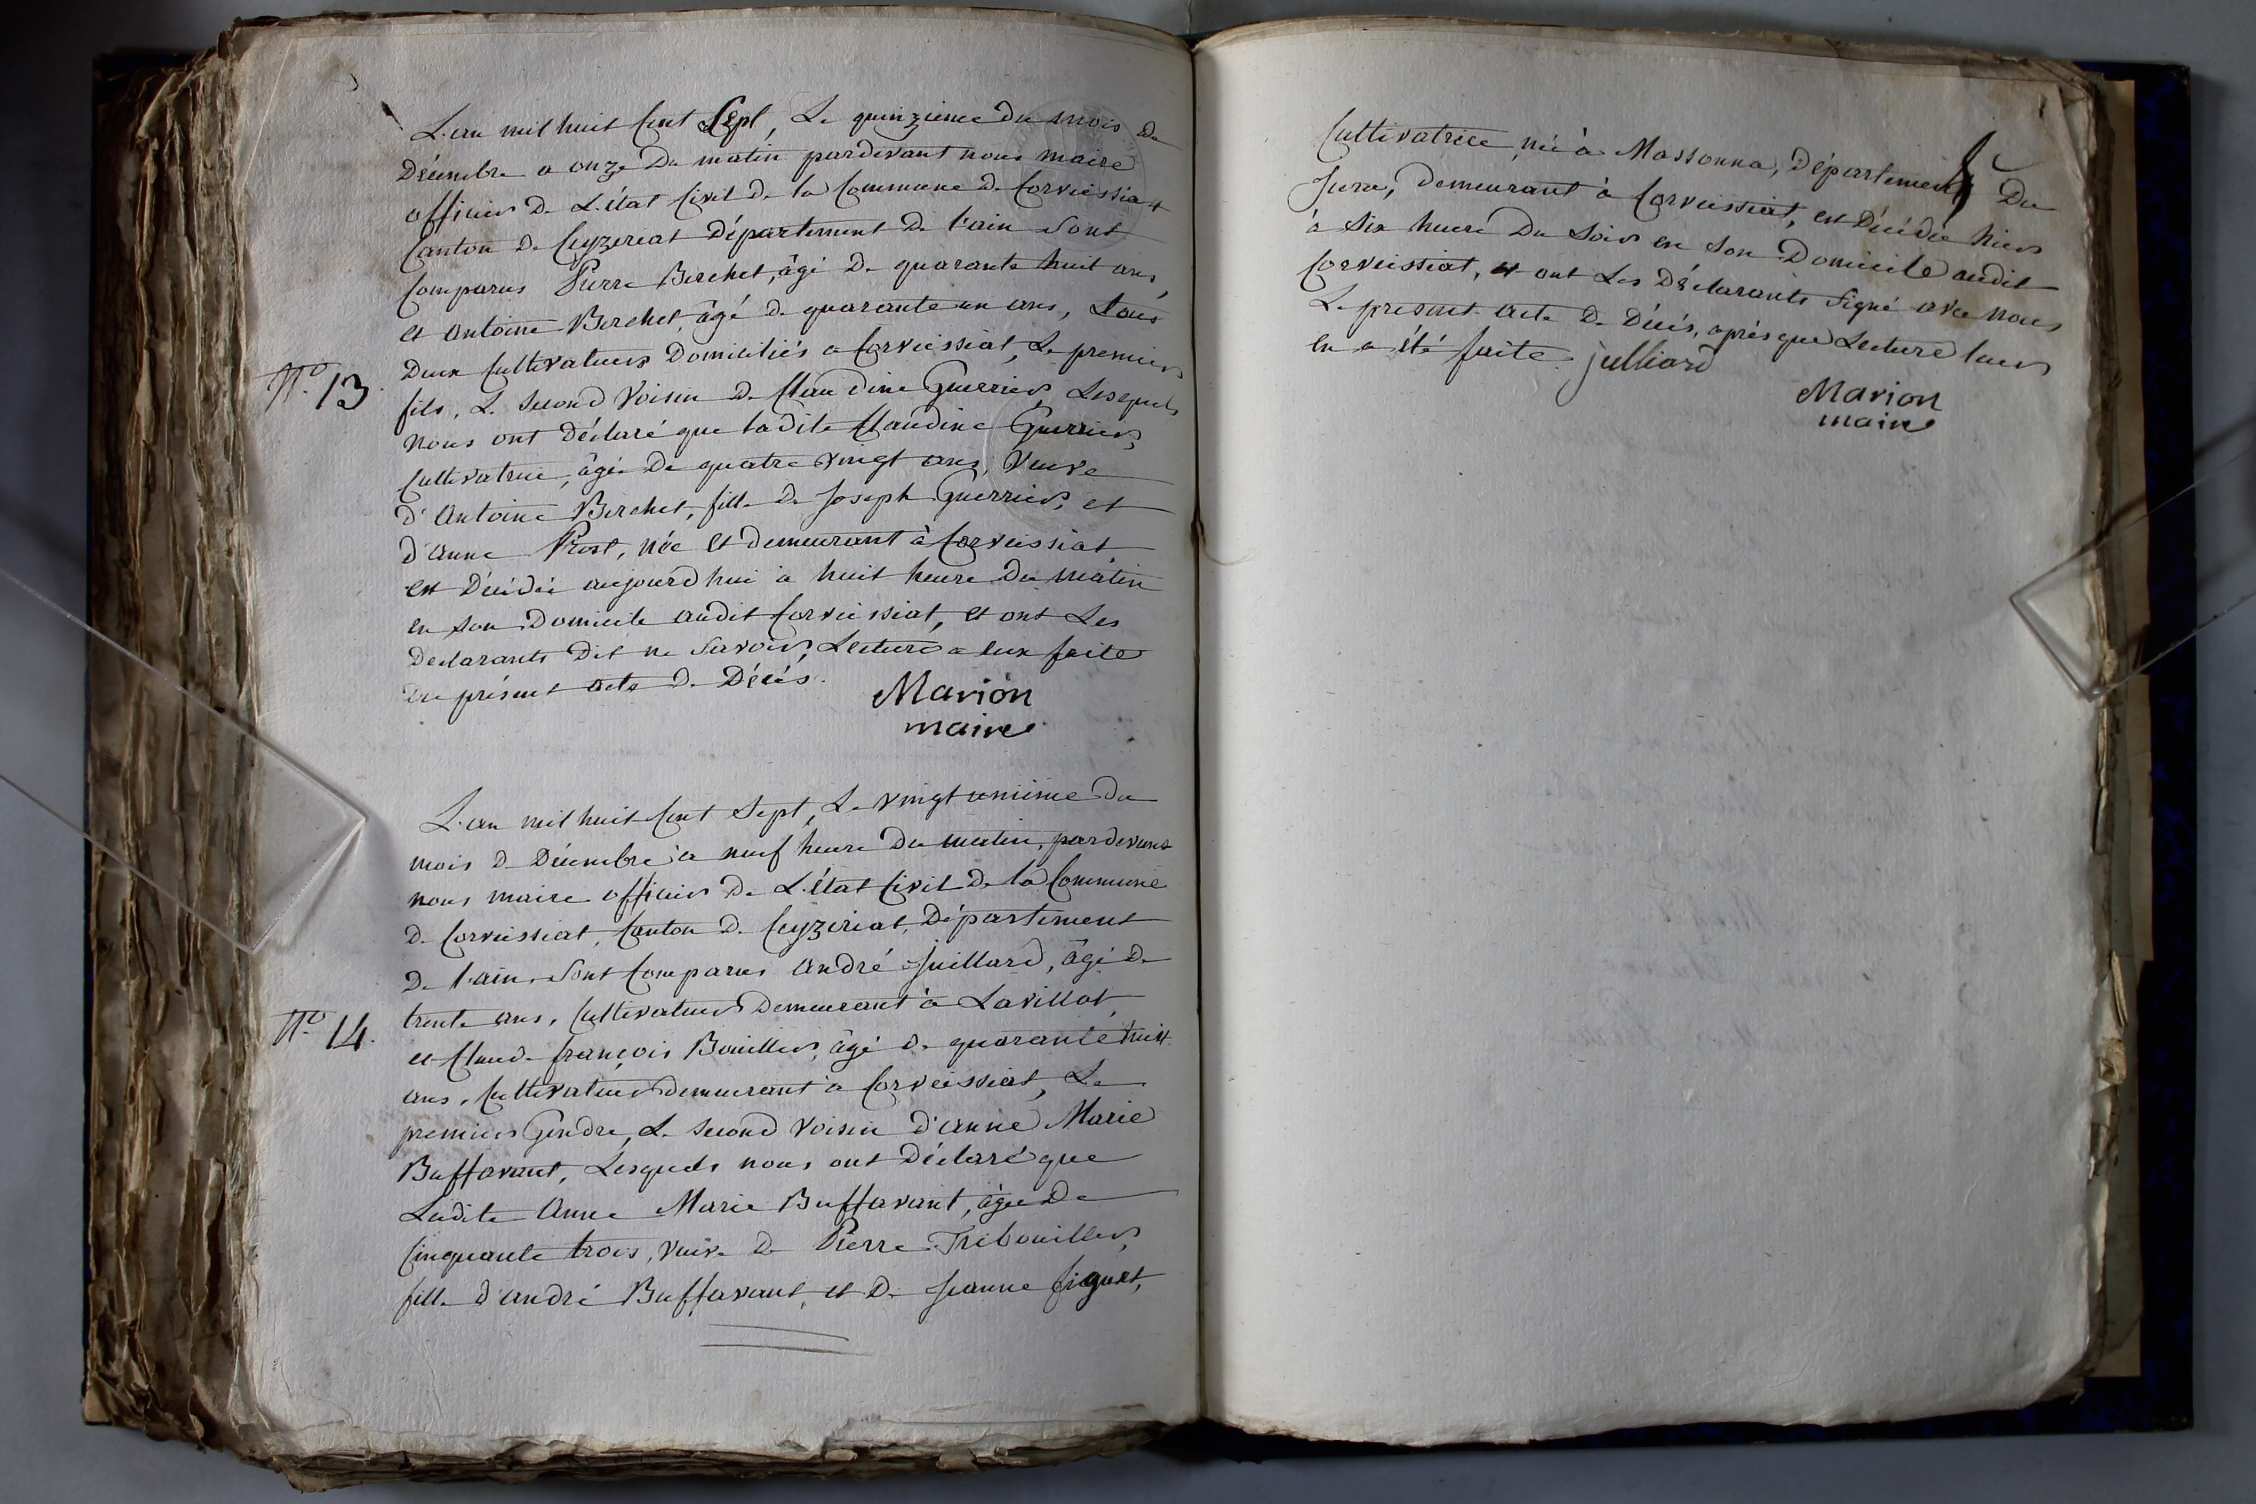 L'an mil huit Cent Sept, Le quinzieme du mois de
Décembre a onze du matin pardevant nous maire
officier de L'état Civil de la Commune de Corveissiat
Canton de Ceyzeriat Département de l'ain Sont
Comparus Pierre Berchet, âgé de quarante huit ans,
et antoine Berchet, âgé de quarante un ans, tous
deux Cultivateurs domiciliés a Corveissiat, Le premier
fils, Le Second Voisin de Claudine Guerrier, Lesquels
Nº 13
nous ont déclaré que ladite Claudine Guerrier,
Cultivatrice, âgée de quatre vingt ans, Veuve
d'Antoine Berchet, fille de Joseph Guerrier, et
d'anne Prost, née et demeurant à Corveissiat
est Décédée aujourd hui à huit heure du matin
en son Domicile audit Corveissiat, et ont Les
Declarants Dit ne Savoir, Lecture a eux faite
du présent acte de Décès.
Marion
maire
L'an mil huit Cent Sept, Le vingt unieme du
mois de Décembre à neuf heure du matin, pardevant
nous maire officier de L'état Civil de la Commune
de Corveissiat, Canton de Ceyzeriat, Département
de l'ain, Sont Comparus andré Juillard, âgé de
trente ans, Cultivateur demeurant à Lavillat,
Nº 14.
et Claude françois Bouiller, âgé de quarante huit
ans, Cultivateur demeurant à Corveissiat, Le
premier Gendre, Le Second Voisin d'anne Marie
Buffavant, Lesquels nous ont Déclaré que
Ladite Anne Marie Buffavant, âgée de
Cinquante trois, veuve de Pierre Tribouiller,
fille d'andré Buffavant, et de Jeanne figuet,
Cultivatrice, née à Massonna, Département du
Jura, demeurant à Corveissiat, est Décédée hier
à Six heure du Soir en Son Domicile audit
Corveissiat, et ont Les Déclarants Signé avec nous
Le present acte de Décès, après que Lecture leur
en a été faite. julliard
Marion
maire